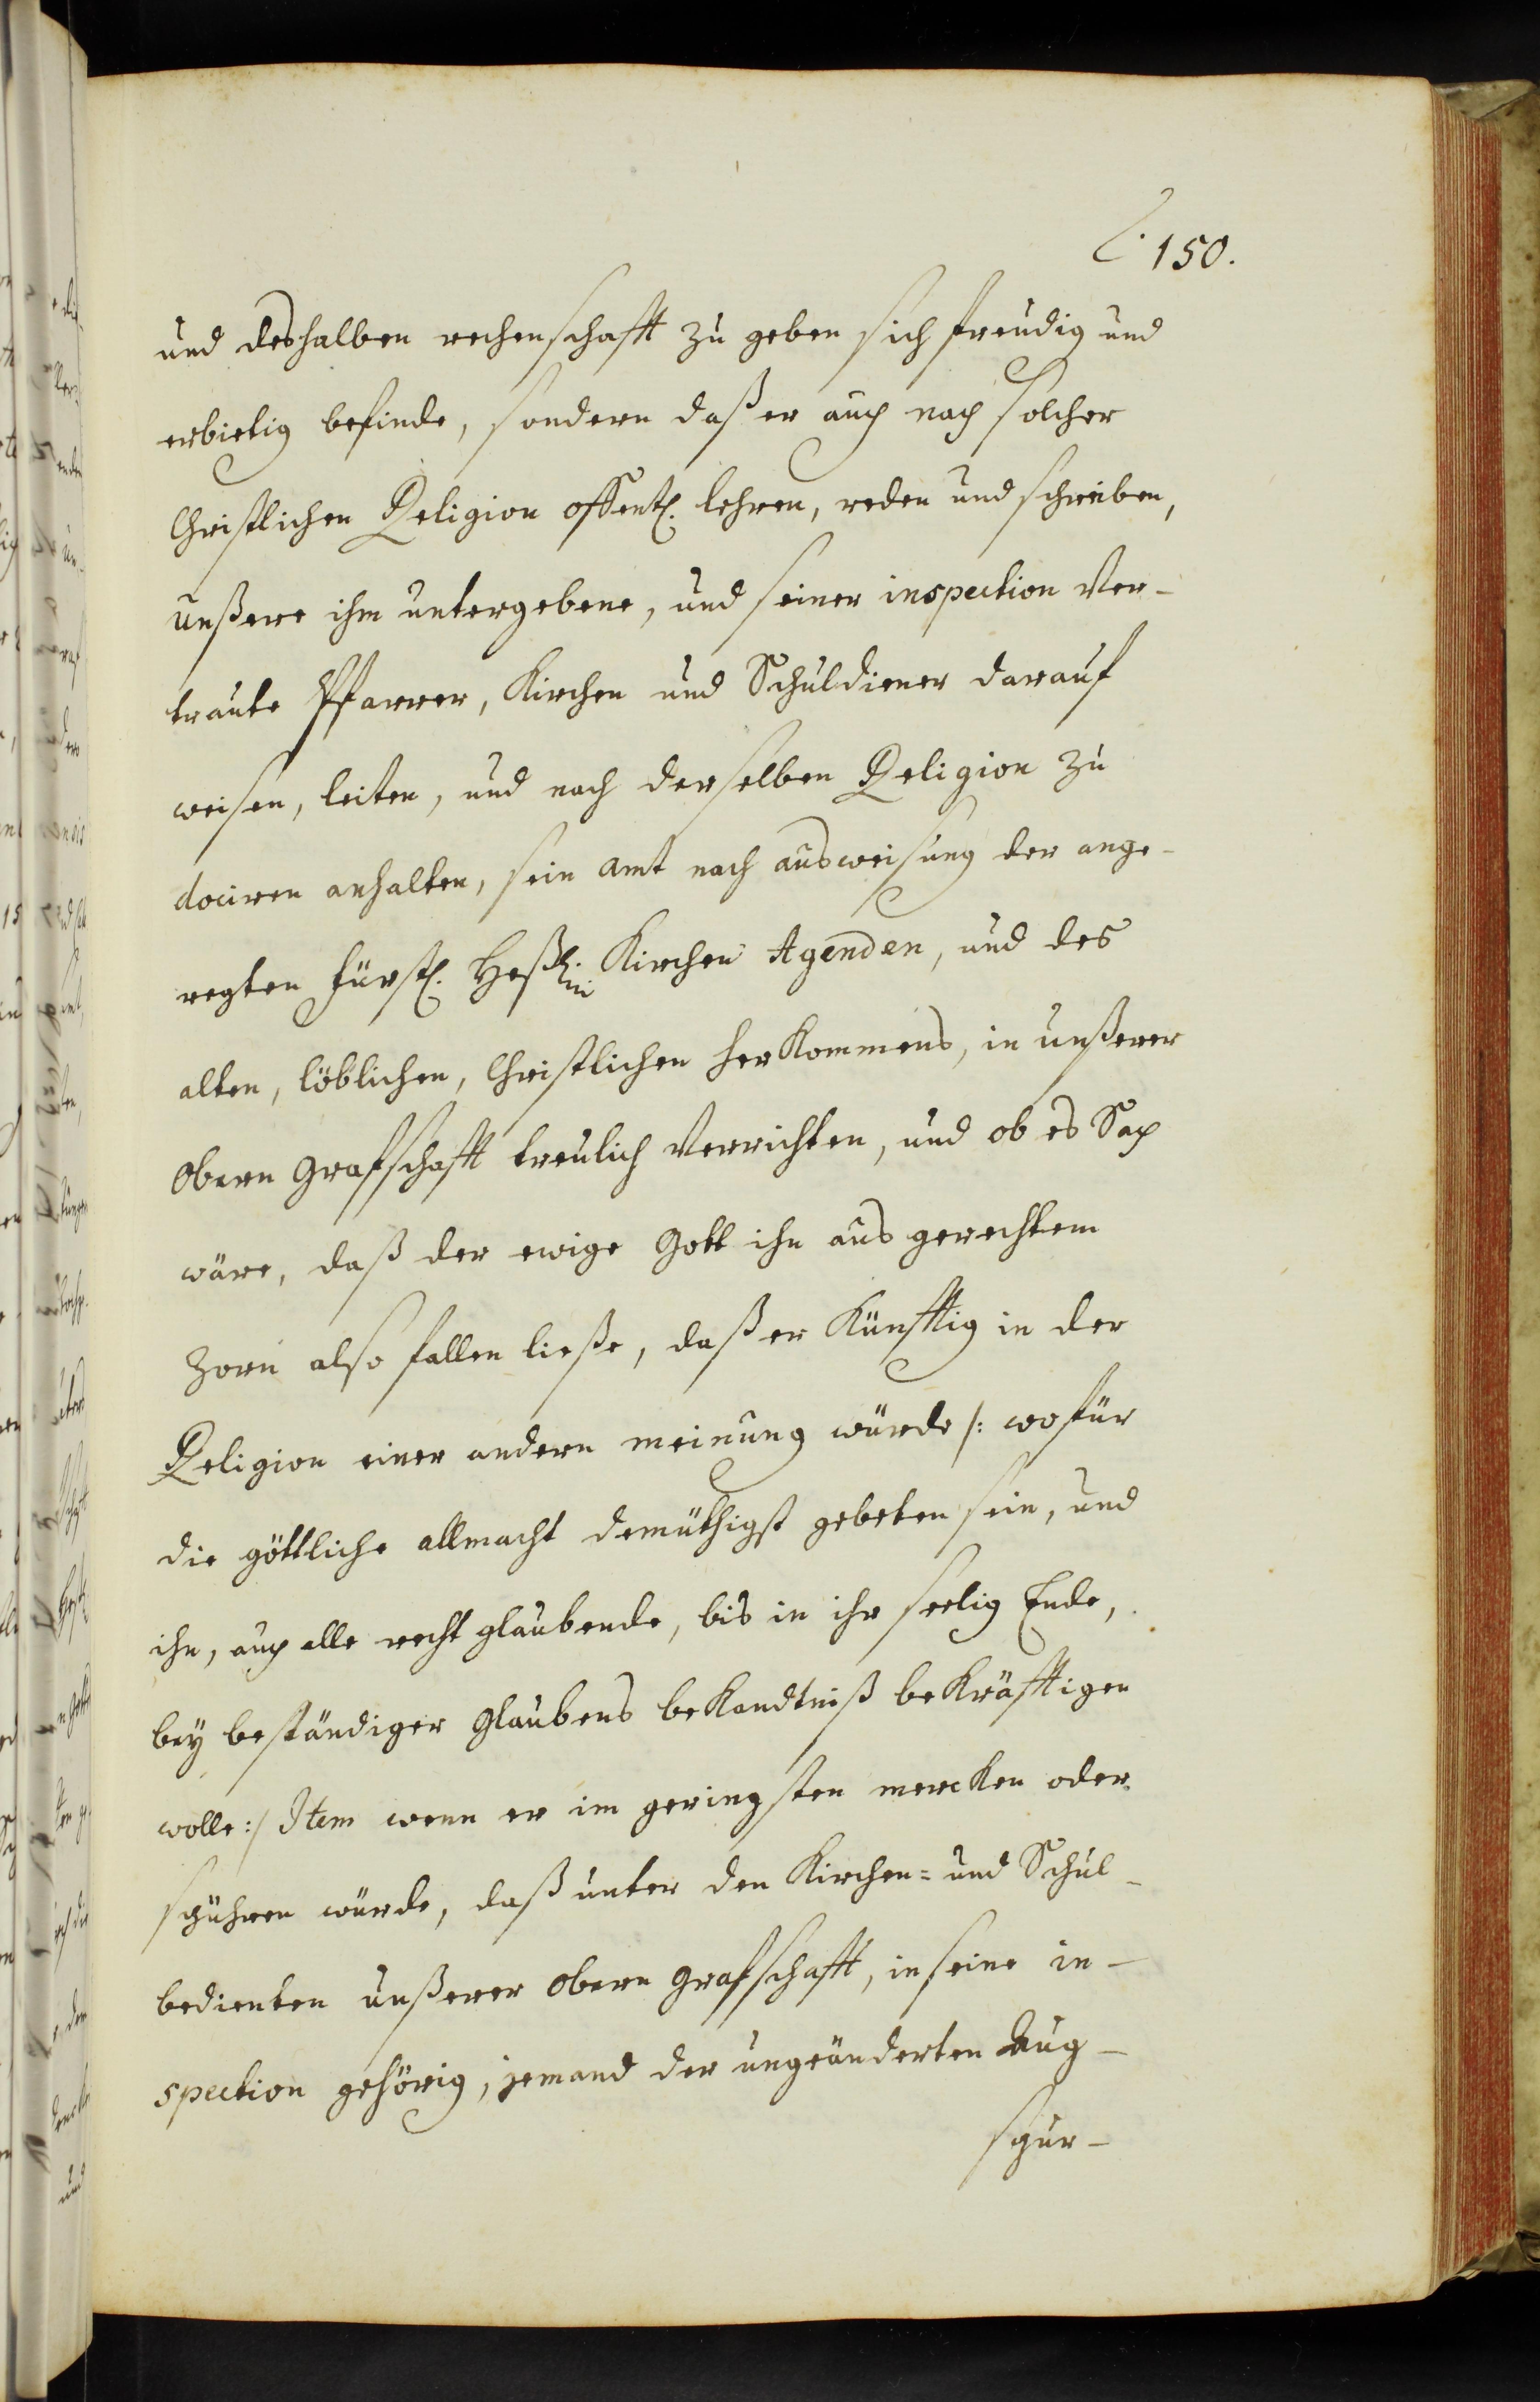 150.
und deshalben rechenschafft zu geben sich freudig und
erbietig befinde, sondern daß er auch nach solcher
Christlichen Religion offentl. lehren, reden und schreiben,
unßere ihm untergebene, und seiner inspection Ver-
traute Pfarrer, Kirchen und Schuldiener darauf
weisen, leiten, und nach derselben Religion zu
dociren anhalten, sein amt nach ausweisung der ange-
regten fürstl. Heßl. Kirchen Agenden, und des
alten, löblichen, Christlichen herKommens, in unßerer
Obern Grafschafft treulich Verrichten, und ob es Sach
wäre, daß der ewige Gott ihn aus gerechtem
Zorn also fallen ließe, daß er Künfftig in der
Religion einer andern meinung würde /: wofür
die göttliche allmacht demüthigst gebeten sein, und
ihn, auch alle recht glaubende, bis in ihr seelig Ende,
bey beständiger Glaubens beKandtniß beKräfftigen
wolle :/ Item wenn er im geringsten mercKen oder
spühren würde, daß unter den Kirchen= und Schul-
bedienten unßerer Obern Grafschafft, in seine in-
spection gehörig, jemand der ungeänderten Aug-
spur-